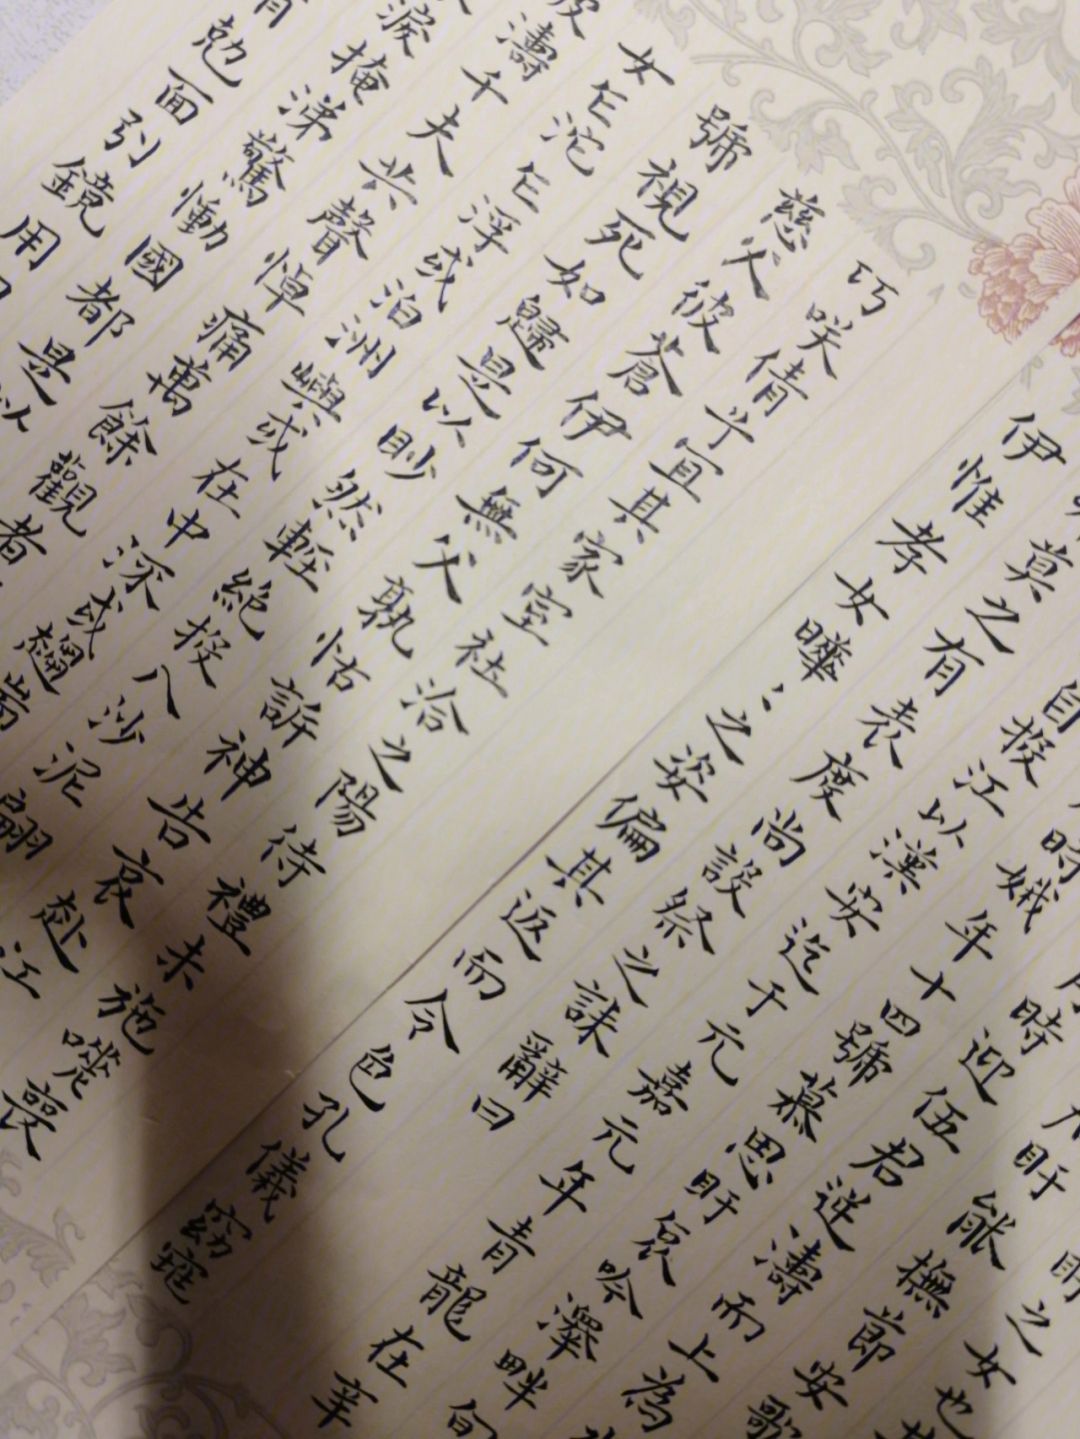 之女也
盱能撫節安歌
時迎伍君逆濤而上為
時娥年十四號慕思盱哀吟澤畔旬
自投江以漢安迄于元嘉元年青龍在辛
莫之有表度尚設祭之誄辭曰
伊惟孝女曄〻之姿偏其返而令色孔儀窈窕
巧咲倩兮宜其家室社洽之陽待禮未施嗟喪
慈父彼蒼伊何無父孰怙訴神告哀赴江
號視死如歸是以眇然輕絕投入沙泥翩
女乍沱乍浮或泊洲嶼或在中流或趨湍
波濤千夫共聲悼痛萬餘觀者
淚掩涕驚慟國都是以
有勊面引鏡用刀